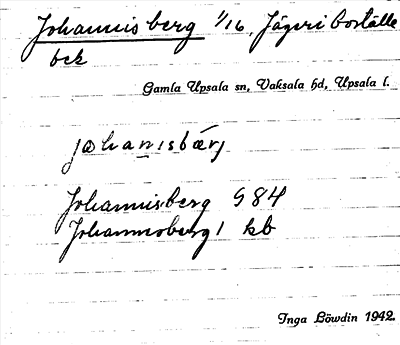 Johannisberg 1/16, Jägeriboställe
bek
Gamla Upsala sn, Vaksala hd, Upsala l.
johanisbærj
Johannisberg G 84
Johannesberg 1 kb
Inga Löwdin 1942.